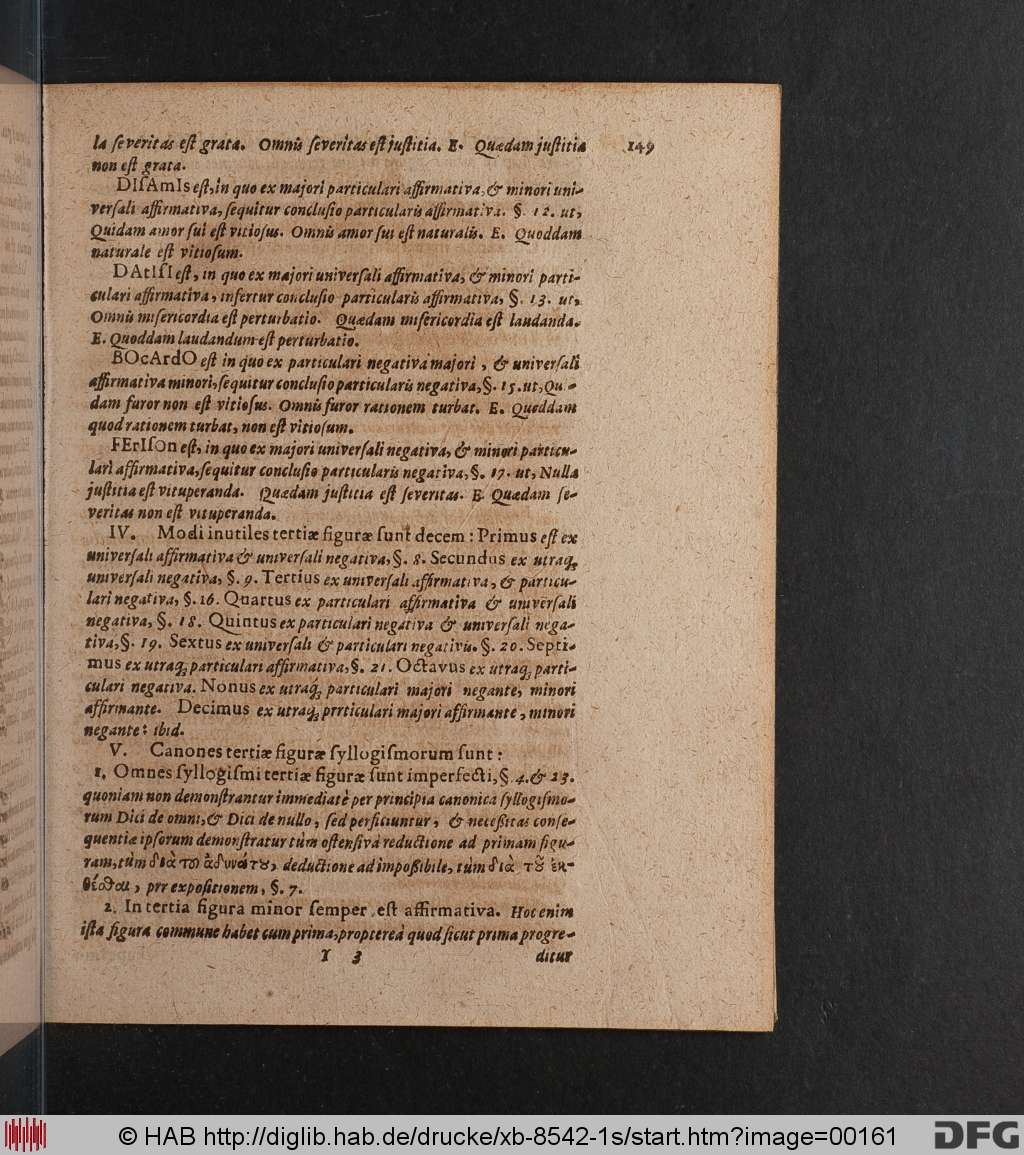 la ſeveritas eſt grata. Omnis ſeveritas eſt juſtitia. E. Quædam juſtitia 149
non eſt grata.
DIſAmIs eſt, in quo ex majori particulari affirmativa, & minori uni-
verſali affirmativa, ſequitur concluſio particularis affirmativa. §. 12. ut,
Quidam amor ſui eſt vitioſus. Omnis amor ſui eſt naturalis. E. Quoddam
naturale eſt vitioſum.
DAtIſI eſt, in quo ex majori univerſali affirmativa, & minori parti-
culari affirmativa, infertur concluſio particularis affirmativa, §. 13. ut,
Omnis miſericordia eſt perturbatio. Quædam miſericordia eſt laudanda.
E. Quoddam laudandum eſt perturbatio.
BOcArdO eſt in quo ex particulari negativa majori, & univerſali
affirmativa minori, ſequitur concluſio particularis negativa, §. 15. ut, Qui-
dam furor non eſt vitioſus. Omnis furor rationem turbat. E. Quoddam
quod rationem turbat, non eſt vitioſum.
FErIſOn eſt, in quo ex majori univerſali negativa, & minori particu-
lari affirmativa, ſequitur concluſio particularis negativa, §. 17. ut, Nulla
juſtitia eſt vituperanda. Quædam juſtitia eſt ſeveritas. E. Quædam ſe-
veritas non eſt vituperanda.
IV. Modi inutiles tertiæ figuræ ſunt decem: Primus eſt ex
univerſali affirmativa & univerſali negativa, §. 8. Secundus ex utraq;
univerſali negativa, §. 9. Tertius ex univerſali affirmativa, & particu-
lari negativa, §. 16. Quartus ex particulari affirmativa & univerſali
negativa, §. 18. Quintus ex particulari negativa & univerſali nega-
tiva, §. 19. Sextus ex univerſali & particulari negativis. §. 20. Septi-
mus ex utraq; particulari affirmativa, §. 21. Octavus ex utraq; parti-
culari negativa. Nonus ex utraq; particulari majori negante, minori
affirmante. Decimus ex utraq; prrticulari majori affirmante, minori
negante: ibid.
V. Canones tertiæ figuræ ſyllogiſmorum ſunt:
1. Omnes ſyllogiſmi tertiæ figuræ ſunt imperfecti, §. 4. & 23.
quoniam non demonſtrantur immediatè per principia canonica ſyllogiſmo-
rum Dici de omni, & Dici de nullo, ſed perficiuntur, & neceßitas conſe-
quentiæ ipſorum demonſtratur tùm oſtenſivâ reductione ad primam figu-
ram, tùm διὰ τοῦ ἀδυνάτου, deductione ad impoßibile, tùm διὰ τοῦ ἐκ-
θέσθαι, prr expoſitionem, §. 7.
2. In tertia figura minor ſemper eſt affirmativa. Hoc enim
iſta figura commune habet cum prima, propterea quod ſicut prima progre-
Y 3 ditur
© HAB http://diglib.hab.de/drucke/xb-8542-1s/start.htm?image=00161 DFG